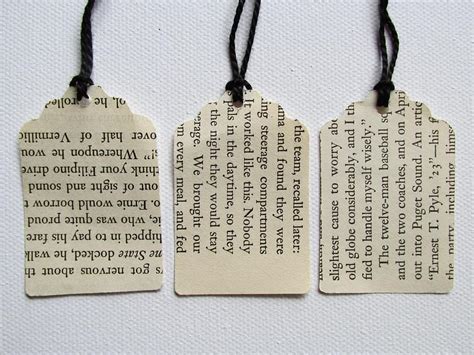 got nervous about th
one State docked, he walk
hipped in to pay his fare
ric, who was quite proud
o. Ernie would borrow
out of sight and sound
think your Filipino drive
s?" Whereupon he wou
over half of Vermillio
oh, he rolled
the team, recalled later:
ma and found they were
ing steerage compartments
It worked like this. Nobody
pals in the daytime, so they
the night they would stay
erage. We brought our
n every meal, and fed
heart.
slightest cause to worry abo
old globe considerably, and I
fied to handle myself wisely."
The twelve-man baseball sq
and the two coaches, and on April
out into Puget Sound. An article
"Ernest T. Pyle, '23"—his f
the party,